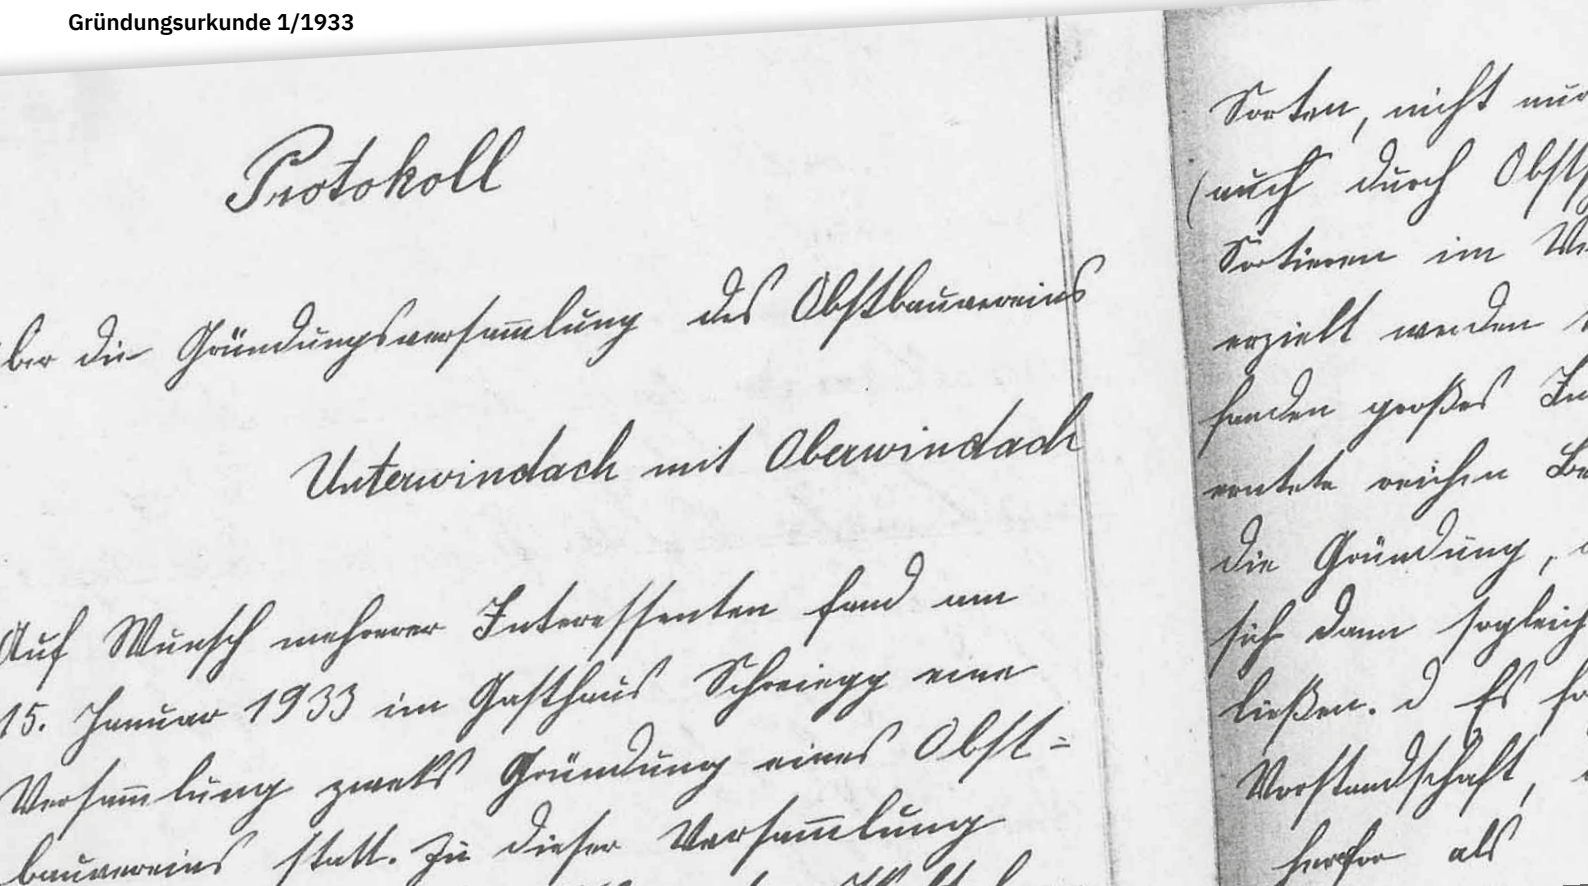 Gründungsurkunde 1/1933
Protokoll
ber die Gründungsversam̅lung des Obstbauvereins
Unterwindach mit Oberwindach
Auf Wunsch mehrerer Interessenten fand am
15. Januar 1933 im Gasthaus Schreiegg eine
Versam̅lung zwecks Gründung eines Obst=
bauvereins statt. Zu dieser Versam̅lung
Sorten, nicht nur
(auch durch Obst
Sortieren im
erzielt werden
fanden großes In
erntete reichen Be
die Gründung,
sich dann sogleich
ließen. d Es fo
Vorstandschaft,
als